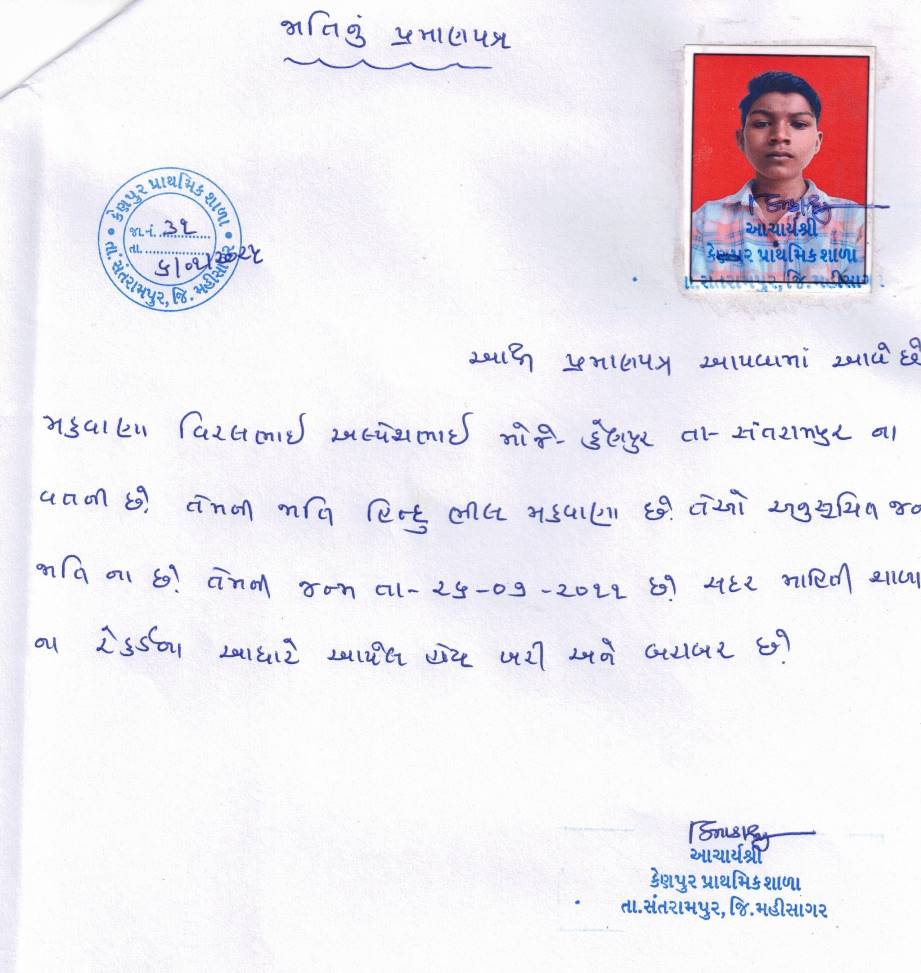 જાતિનું પ્રમાણપત્ર
કેણપુર પ્રાથમિક શાળા
તા. સંતરામપુર, જિ. મહીસાગર
જા.નં. ૩૧
તા.
આચાર્યશ્રી
કેણપુર પ્રાથમિક શાળા
તા.સંતરામપુર, જિ.મહીસાગર
આથી પ્રમાણપત્ર આપવામાં આવે છે
મકવાણા વિરલભાઈ અલ્પેશભાઈ મોજે- કેણપુર તા- સંતરામપુર ના
વતની છે. તેમની જાતિ હિન્દુ ભીલ મકવાણા છે. તેઓ અનુસૂચિત જન
જાતિ ના છે. તેમની જન્મ તા- ૨૬-૦૭-૨૦૧૧ છે. સદર માહિતી શાળા
ના રેકર્ડના આધારે આપેલ હોય ખરી અને બરાબર છે.
આચાર્યશ્રી
કેણપુર પ્રાથમિક શાળા
તા.સંતરામપુર, જિ.મહીસાગર